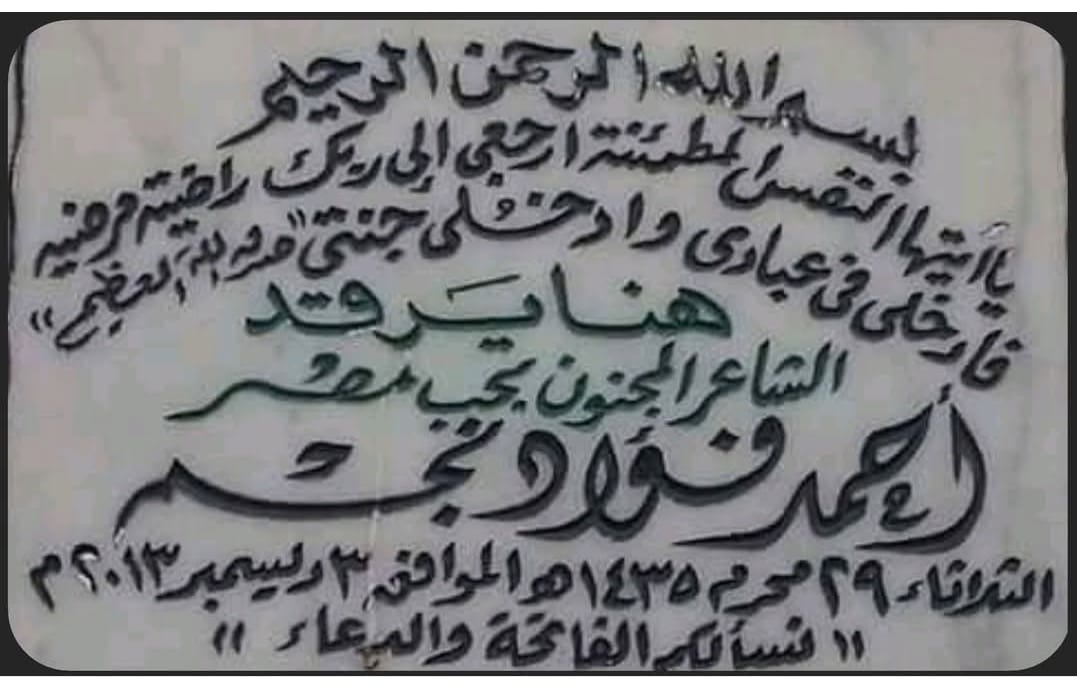 بسم الله الرحمن الرحيم
ياأيتها النفس المطمئنة ارجعى إلى ربك راضية مرضيه
فادخلى فى عبادى وادخلى جنتى "صدق الله العظيم"
هنا يرقد
الشاعر المجنون بحب مصر
أحمد فؤاد نجم
الثلاثاء ٢٩ محرم ١٤٣٥ هـ الموافق ٣ ديسمبر ٢٠١٣ م
"نسألكم الفاتحة والدعاء"